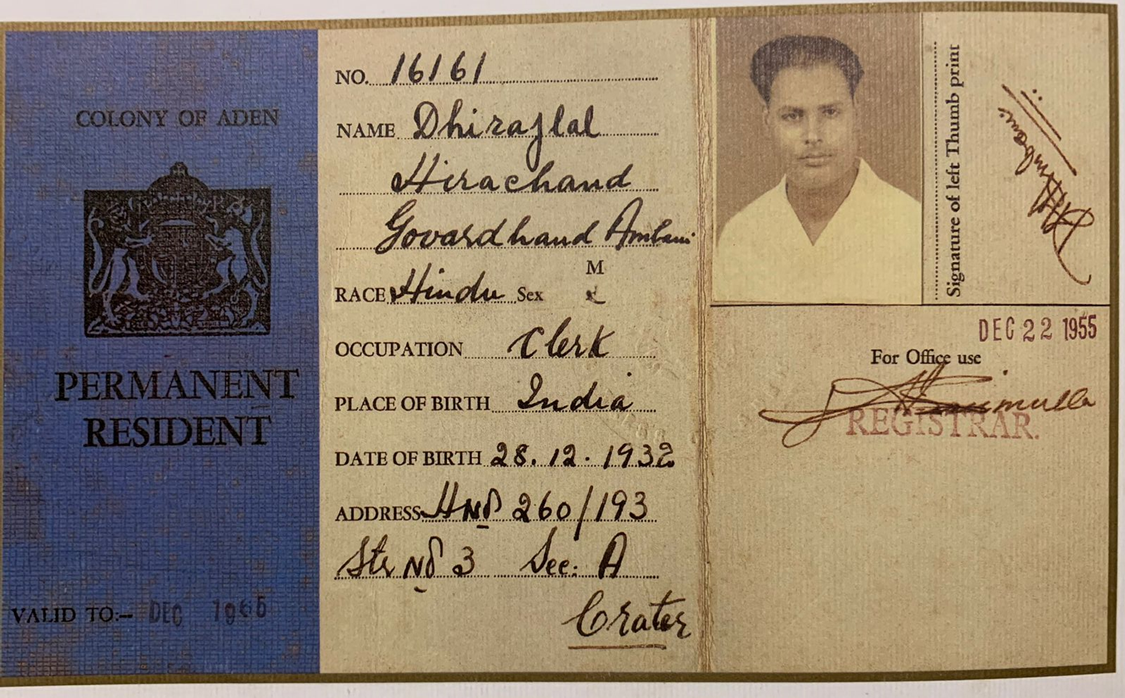 COLONY OF ADEN
PERMANENT
RESIDENT
VALID TO:- DEC 1965
NO. 16161
NAME Dhirajlal
Hirachand
Govardhand Ambani
RACE Hindu Sex M
OCCUPATION Clerk
PLACE OF BIRTH India
DATE OF BIRTH 28.12.1932
ADDRESS HNo 260/193
Str No 3 Sec: A
Crater
Signature of left Thumb print
DHAmbani
DEC 22 1955
For Office use
REGISTRAR.